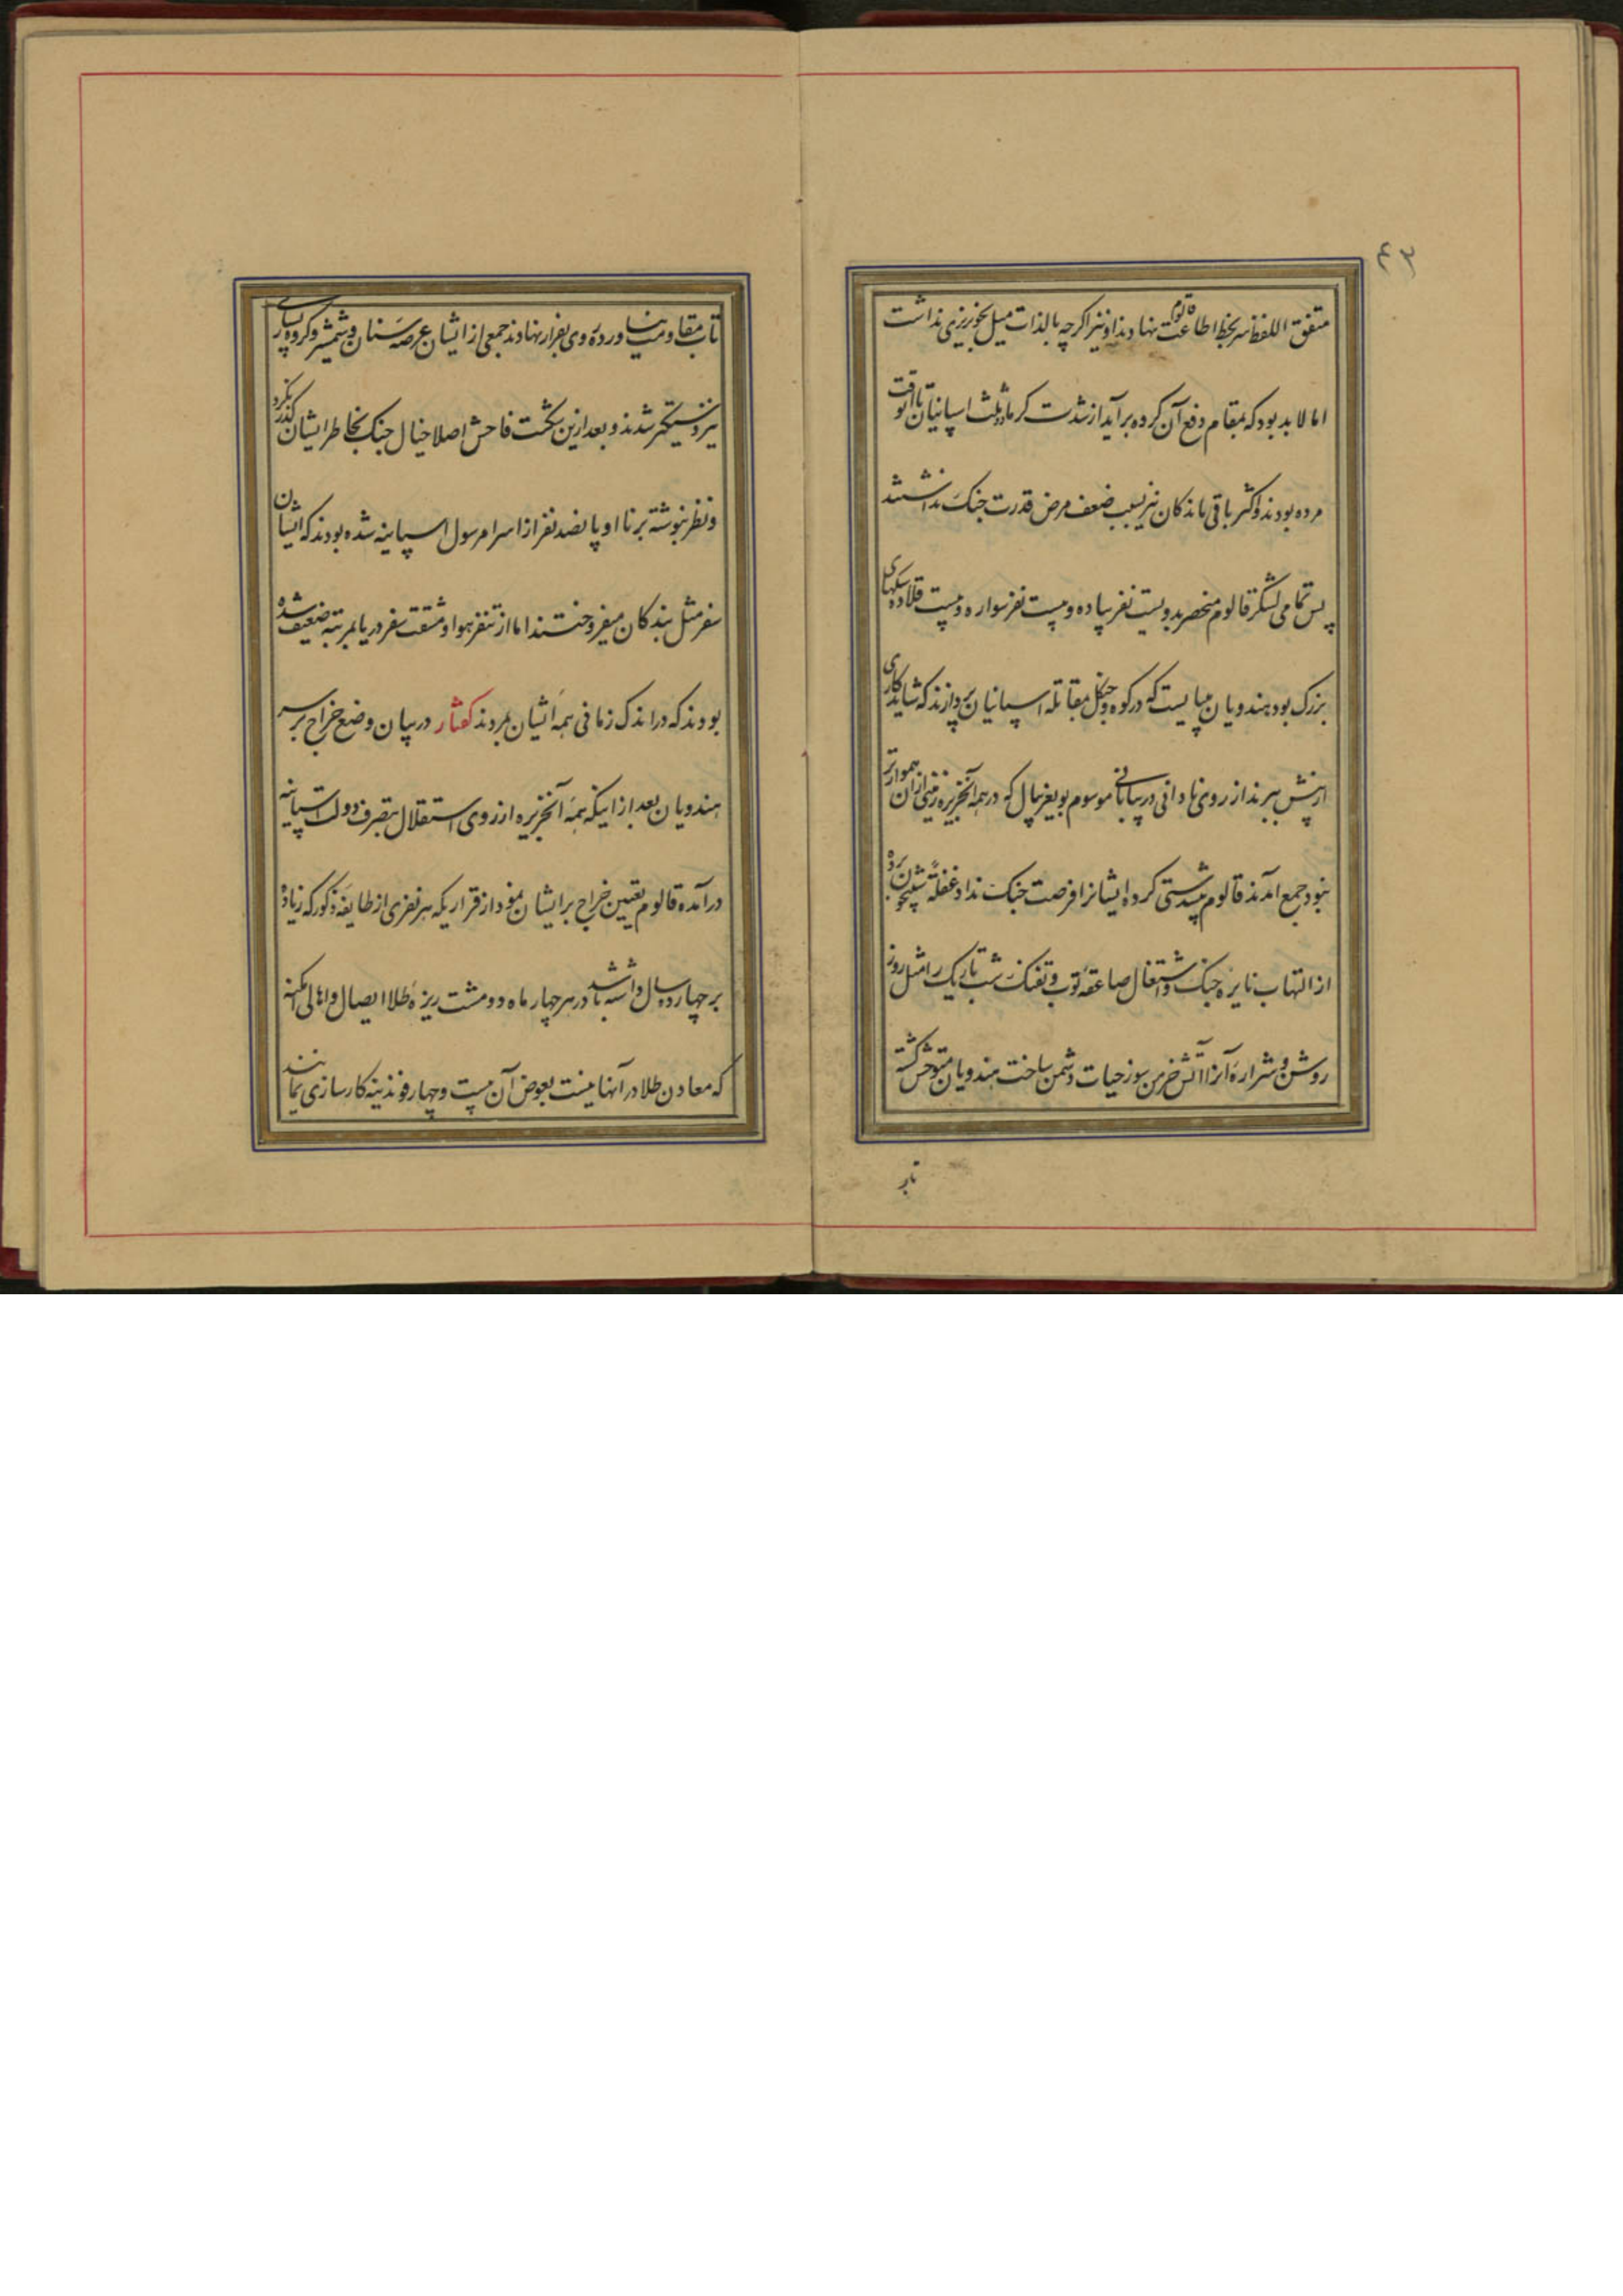 ۴۳
متفق اللفظ سر بخط اطاعت قالوم نهادند او نیز اگرچه بالذات میل بخونریزی نداشت
اما لابد بود که بمقام دفع آن کرده برآید از شدت کرما دو ثلث اسپانیان تا آنوقت
مرده بودند و اکثر باقی ماندکان نیز بسبب ضعف مرض قدرت جنک نداشتند
پس تمامی لشکر قالوم منحصر بدویست نفر پیاده و بیست نفر سواره و بیست قلاده سکهای
بزرک بود هندویان میبایست که در کوه و جنکل بمقاتله اسپانیان پردازند که شاید کاری
از پیش ببرند از روی نادانی در بیابانی موسوم بویغریال که در همه آنجزیره زمینی از آن هموارتر
نبود جمع آمدند قالوم پیشدستی کرده ایشانرا فرصت جنک نداد غفلةً شبیخون برده
از التهاب نایره جنک و اشتغال صاعقه توب و تفنک شب تاریک را مثل روز
روشن و شراره آنرا آتش خرمن سوز حیات دشمن ساخت هندویان متوحش کشته
تاب
تاب مقاومت نیاورده روی بفرار نهادند جمعی از ایشان عرصه سنان و شمشیر و کروه بسیاری
نیز دستکیر شدند و بعد ازین شکست فاحش اصلا خیال جنک بخاطر ایشان کذر نکرد
و نظر بنوشته برنا او پانصد نفر از اسرا مرسول اسپانیه شده بودند که ایشان
سفر مثل بندکان میفروختند اما از تنفر هوا و مشقت سفر دریا بمرتبه ضعیف شده
بودند که در اندک زمانی همه ایشان مردند کفتار در بیان وضع خراج بر سر
هندویان بعد از اینکه همه آنجزیره از روی استقلال بتصرف دولت اسپانیه
درآمده قالوم تعیین خراج بر ایشان نمود از قرار یکه هر نفری از طایفه مذکور که زیاده
بر چهارده سال داشته باشد در هر چهار ماه دو مشت ریزه طلا ایصال و اهالی امکنه
که معادن طلا در آنها نیست بعوض آن بیست و چهار فوند پنبه کارسازی نمایند